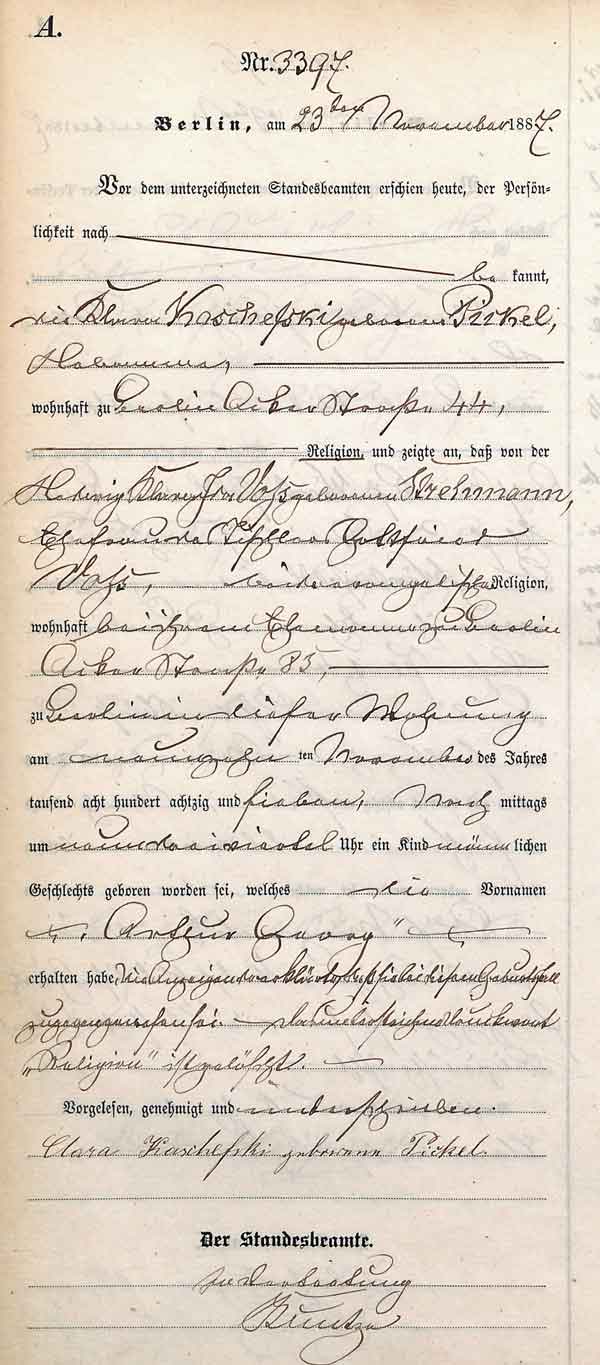 A.
Nr. 3397.
Berlin, am 23ten November 1887.
Vor dem unterzeichneten Standesbeamten erschien heute, der Persön-
lichkeit nach
be kannt,
die Klara Kaschefski geborene Pickel,
Hebamme,
wohnhaft zu Berlin Acker Straße 44,
Religion, und zeigte an, daß von der
Hedwig Klara Ida Voß geborenen Strehmann,
Ehefrau des Tischlers Gottfried
Voß, beide evangelischer Religion,
wohnhaft bei ihrem Ehemanne zu Berlin
Acker Straße 85,
zu Berlin in dieser Wohnung
am neunzehn ten November des Jahres
tausend acht hundert achtzig und sieben, Nach mittags
um neun dreiviertel Uhr ein Kind männ lichen
Geschlechts geboren worden sei, welches die Vornamen
„Artur Georg“
erhalten habe. Die Anzeigende erklärte, daß sie bei diesem Geburtsfall
zugegen gewesen sei. Das unterstrichene Druckwort
„Religion“ ist gelöscht.
Vorgelesen, genehmigt und unterschrieben.
Clara Kaschefski geborene Pickel.
Der Standesbeamte.
In Vertretung
Kuntze